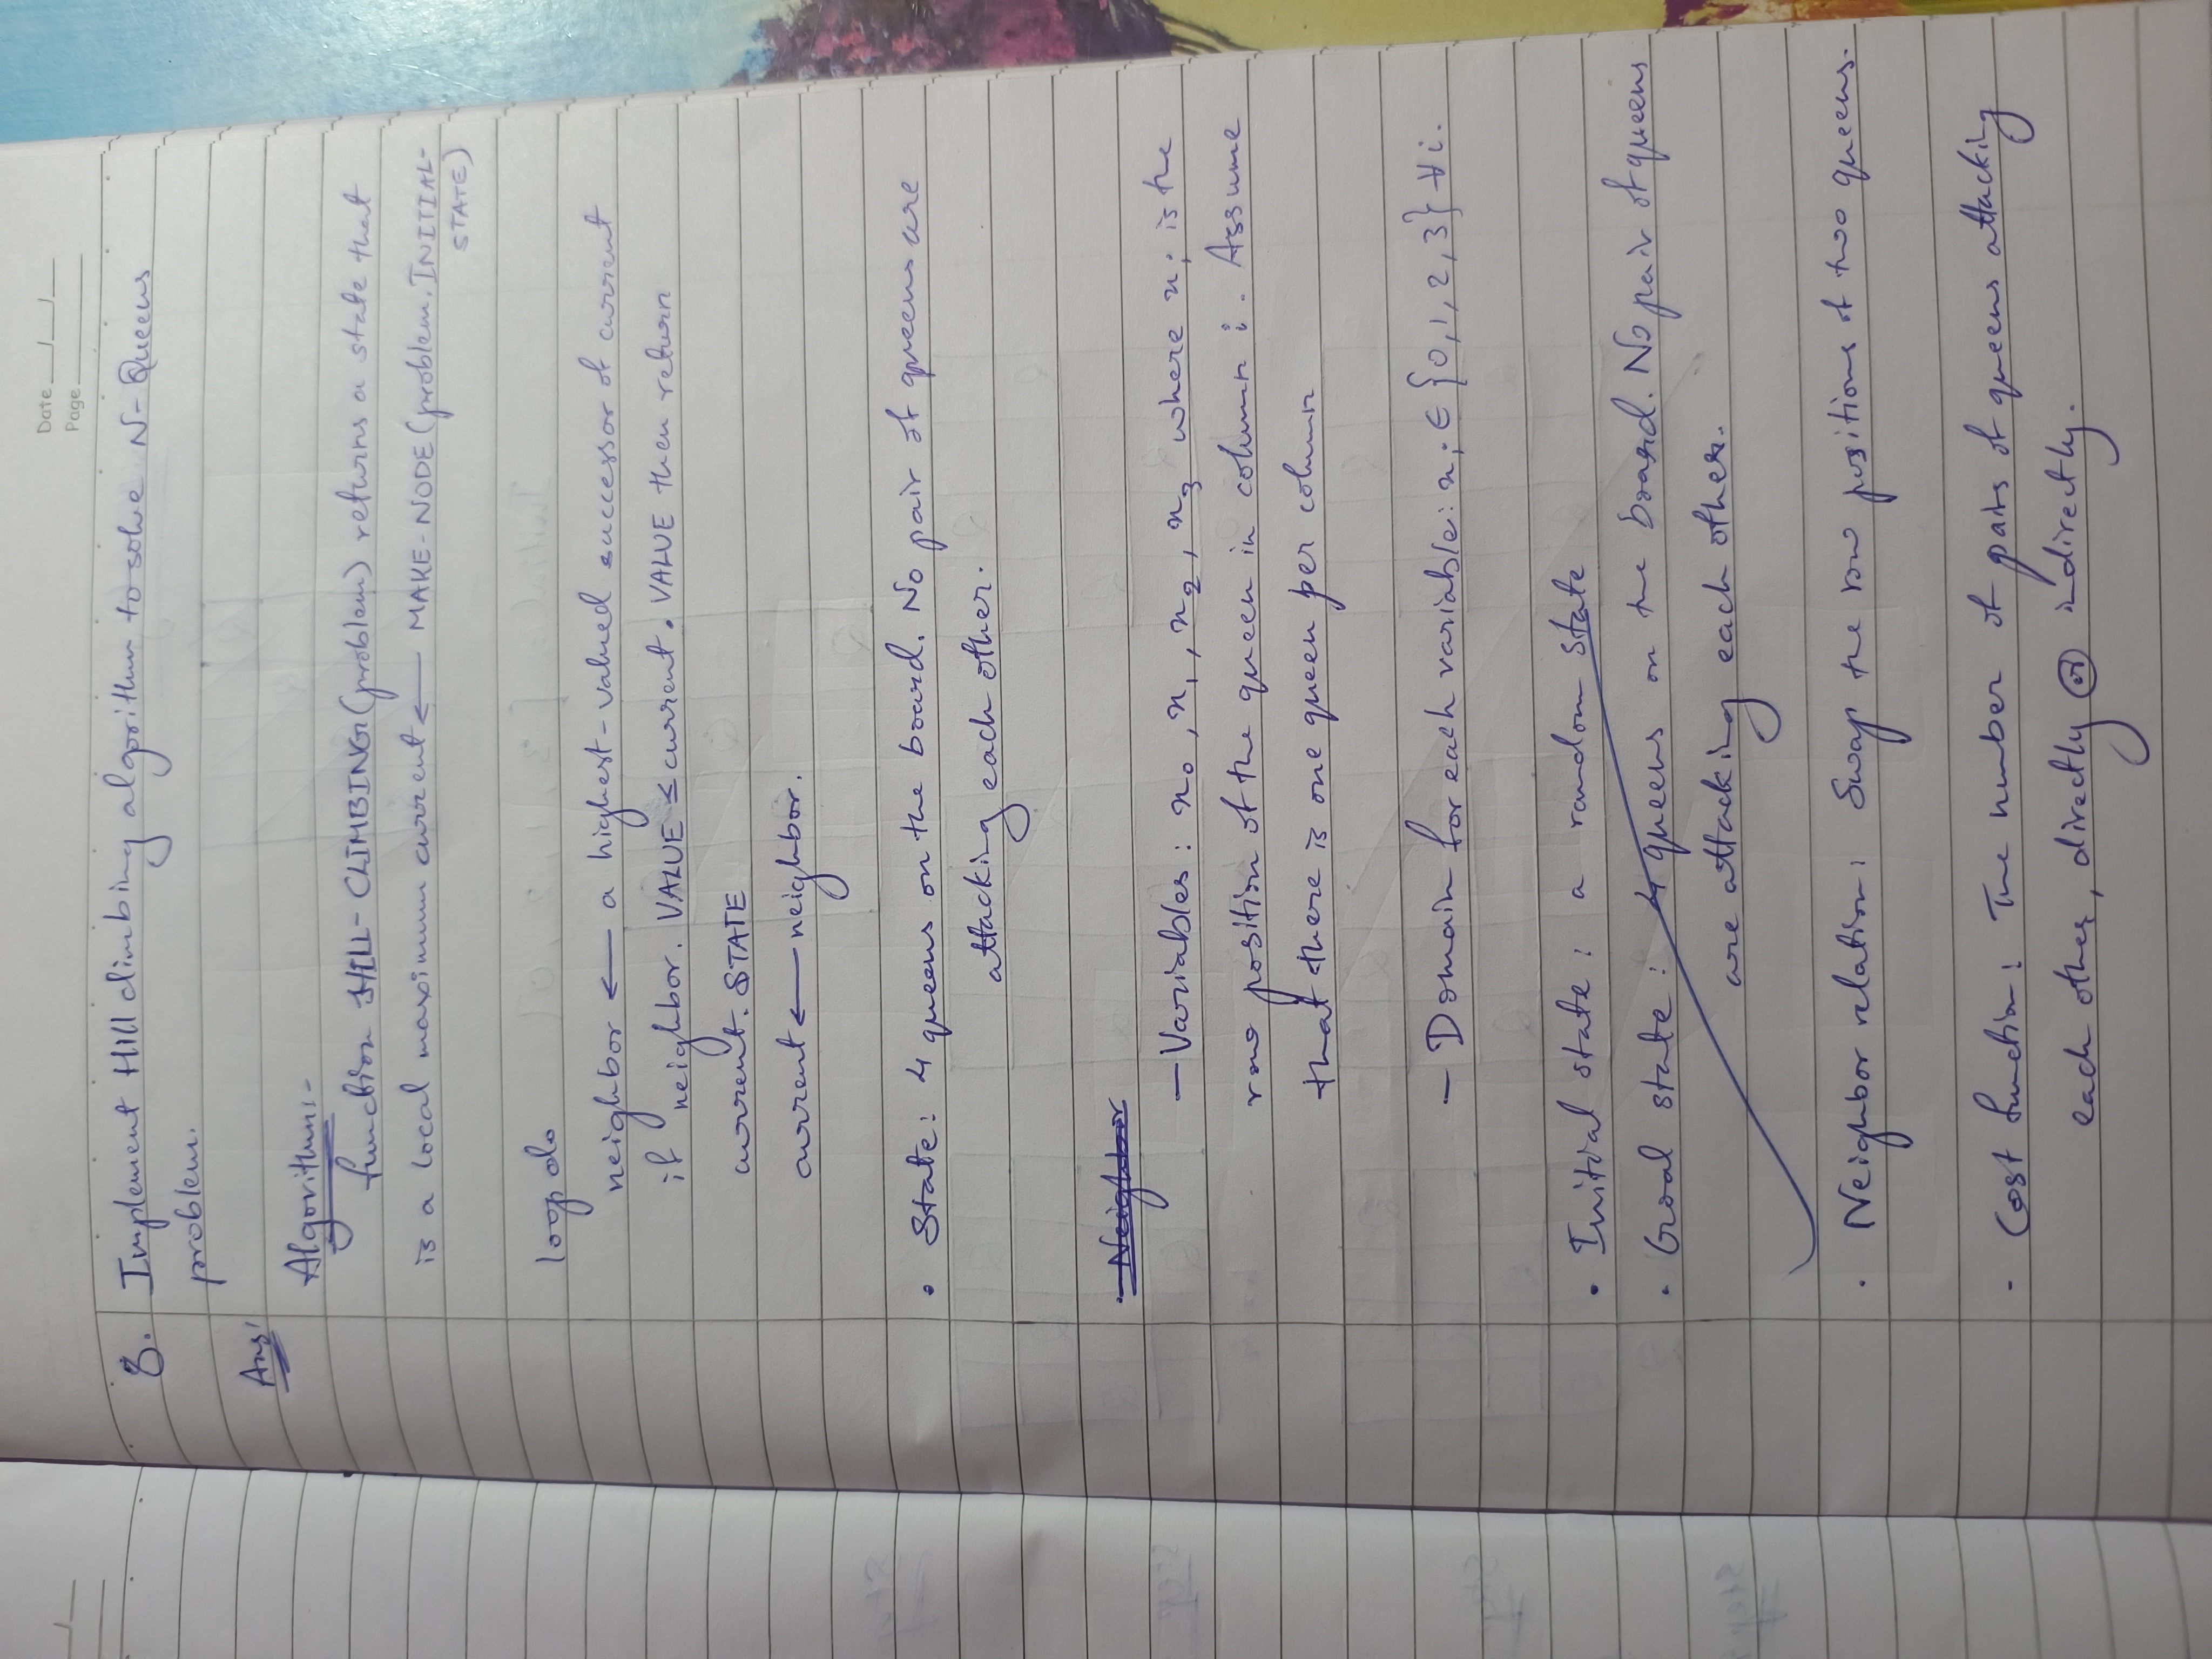 Date __/__/__
Page ______
8. Implement Hill climbing algorithm to solve N-Queens
problem.
Ans'
Algorithm:-
function HILL-CLIMBING(problem) returns a state that
is a local maximum current ← MAKE-NODE(problem.INITIAL-
STATE)
loop do
neighbor ← a highest-valued successor of current
if neighbor. VALUE ≤ current. VALUE then return
current. STATE
current ← neighbor.
• State: 4 queens on the board. No pair of queens are
attacking each other.
• Neighbor
– Variables: x₀, x₁, x₂, x₃ where xᵢ is the
row position of the queen in column i. Assume
that there is one queen per column
– Domain for each variable: xᵢ ∈ {0,1,2,3} ∀i.
• Initial state: a random state
• Goal state: 4 queens on the board. No pair of queens
are attacking each other.
• Neighbor relation: Swap the row positions of two queens.
• Cost function: The number of pairs of queens attacking
each other, directly or indirectly.